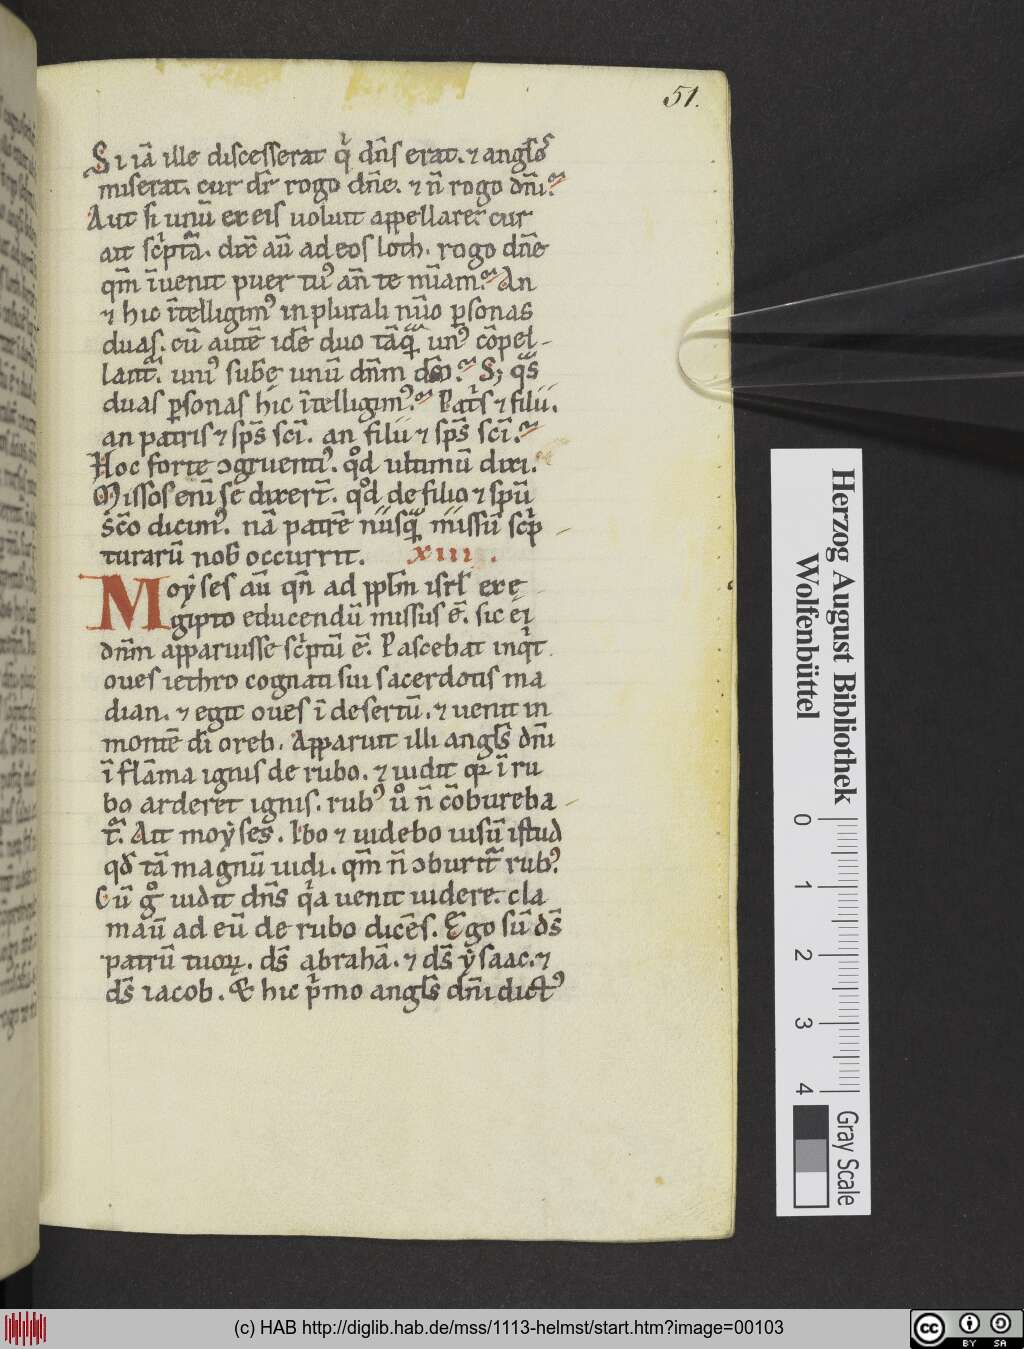 51.
Si iā ille discesserat q̇ dn̄s erat. ⁊ angl̄os
miserat. cur dr̄ rogo dn̄e. ⁊ n̄ rogo dn̄i?
Aut si unū ex eis uoluit appellare? cur
ait sc̓ptā. dix̄ aū ad eos loth. rogo dn̄e
qm̄ īuenit puer tu᾽ an̄ te mīam? An
⁊ hic ītelligim᾽ in plurali nūo ꝑsonas
duas. cū autē idē duo tāꝗ̃ un᾽ cōpel-
lant̃. uni᾽ subē unū dn̄m dm̄? S; qͣs
duas ꝑsonas hic ītelligim᾽? Pat̓s ⁊ filii.
an patris ⁊ sp̄s sc̄i. an filii ⁊ sp̄s sc̄i?
Hoc forte ↄgruenti᾽. qͦd ultimū dixi.
Missos enī se dixert̄. qͦd de filio ⁊ sp̄u
sc̄o dicim᾽. nā patrē nusꝗ̃ missū sc̓p
turarū nob̄ occurrit. xiii.
Moẏses aū qn̄ ad ppl̄m isrl̄ ex ę
gipto educendū missus ē. sic ei
dn̄m apparuisse sc̓ptū ē. Pascebat inq̓t
oues iethro cognati sui sacerdotis ma
dian. ⁊ egit oues ī desertū. ⁊ uenit in
montē dī oreb. Apparuit illi angl̄s dn̄i
ī flāma ignis de rubo. ⁊ uidit qꝛ ī ru
bo arderet ignis. rub᾽ uͦ n̄ cōbureba
t̃. Ait moẏses. Ibo ⁊ uidebo uisū istud
qd̄ tā magnū uidi. qm̄ n̄ ↄburit̃ rub᾽.
Cū gͦ uidit dn̄s qͣa uenit uidere. cla
mauͭ ad eū de rubo dicēs. Ego sū ds̄
patrū tuoꝝ. ds̄ abrahā. ⁊ ds̄ ẏsaac. ⁊
ds̄ iacob. Et hic p̓mo angl̄s dn̄i dict᾽
Herzog August Bibliothek
Wolfenbüttel
0 1 2 3 4
Gray Scale
(c) HAB http://diglib.hab.de/mss/1113-helmst/start.htm?image=00103
cc BY SA